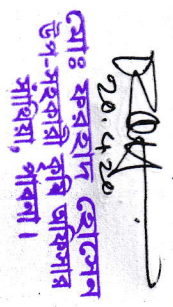 20.4.20
মোঃ ফরহাদ হোসেন
উপ-সহকারী কৃষি অফিসার
সাঁথিয়া, পাবনা।